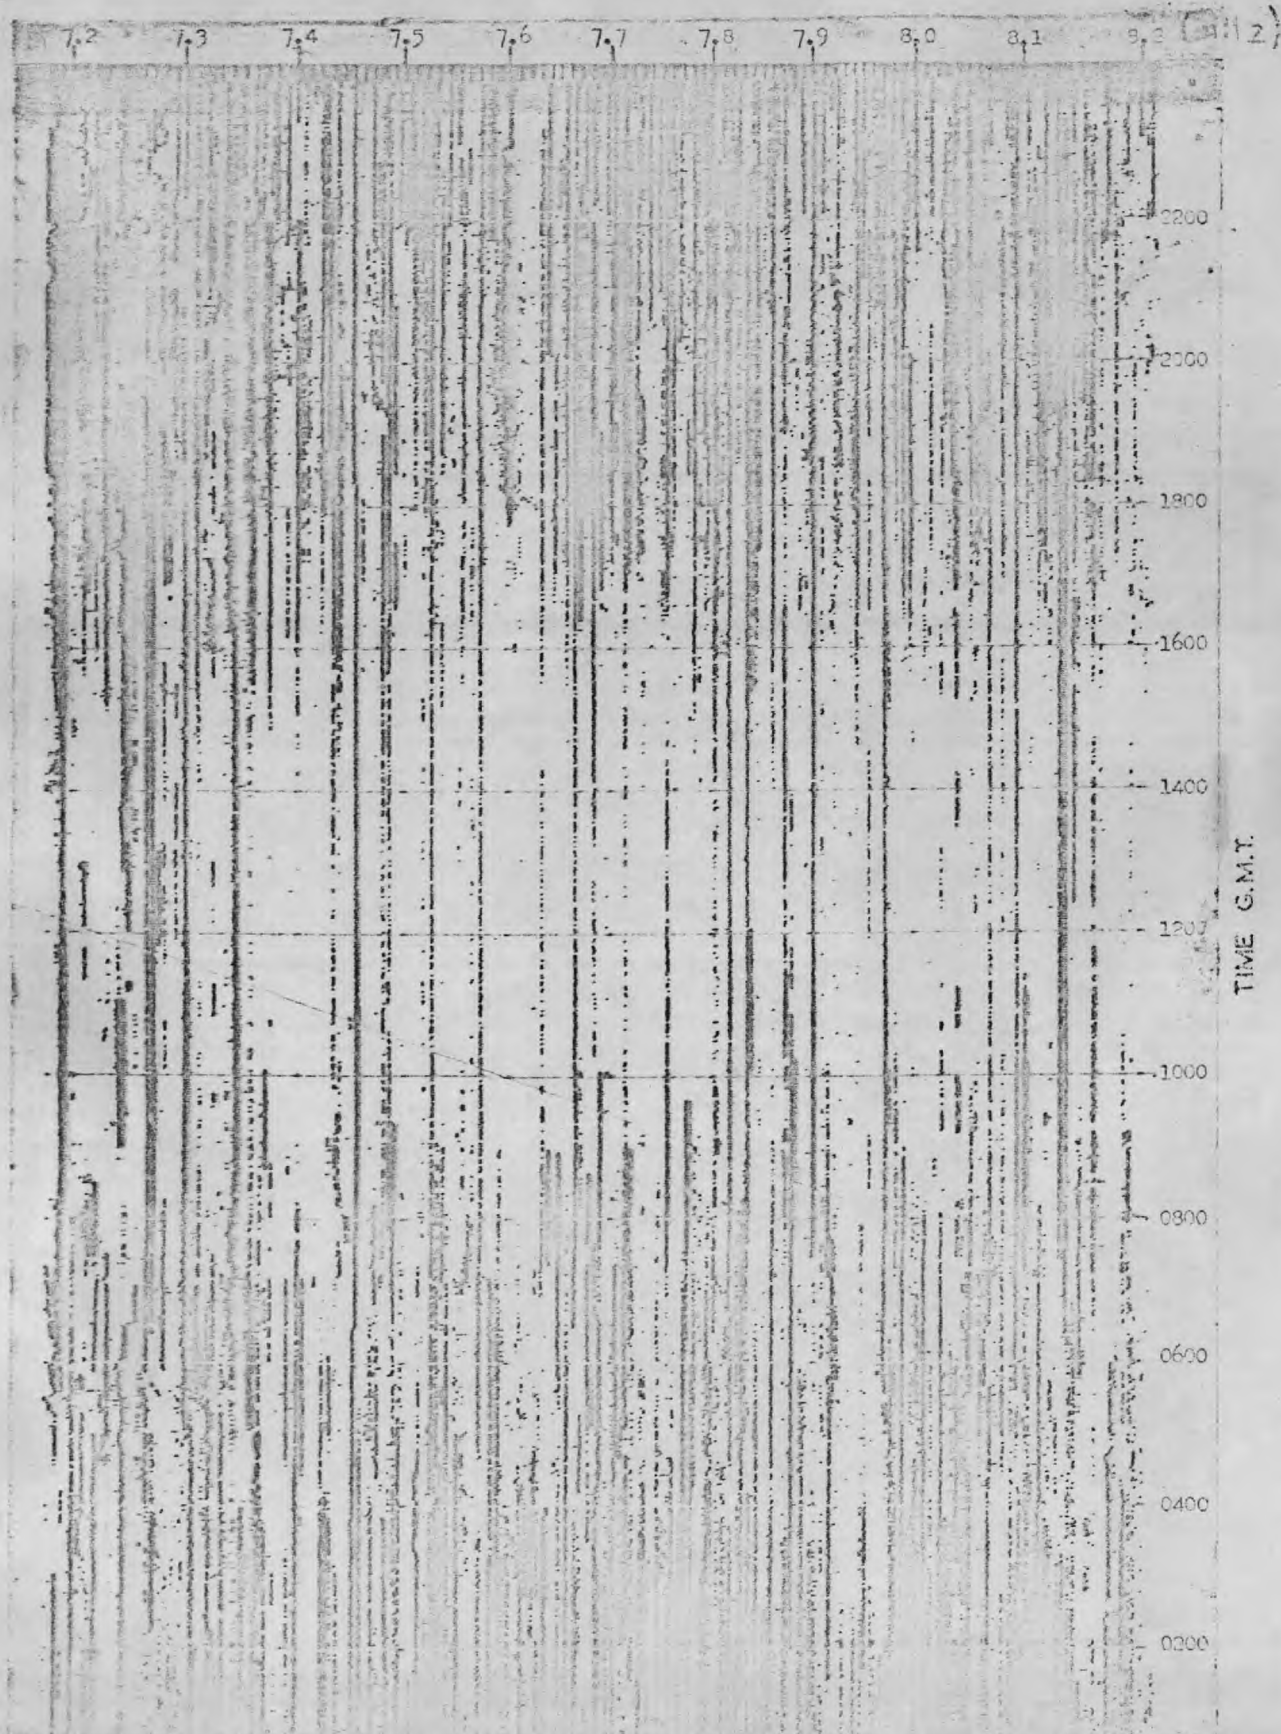 7.2 7.3 7.4 7.5 7.6 7.7 7.8 7.9 8.0 8.1 8.2 (MHz)
2200
2000
1800
1600
1400
1200
1000
0800
0600
0400
0200
TIME G.M.T.